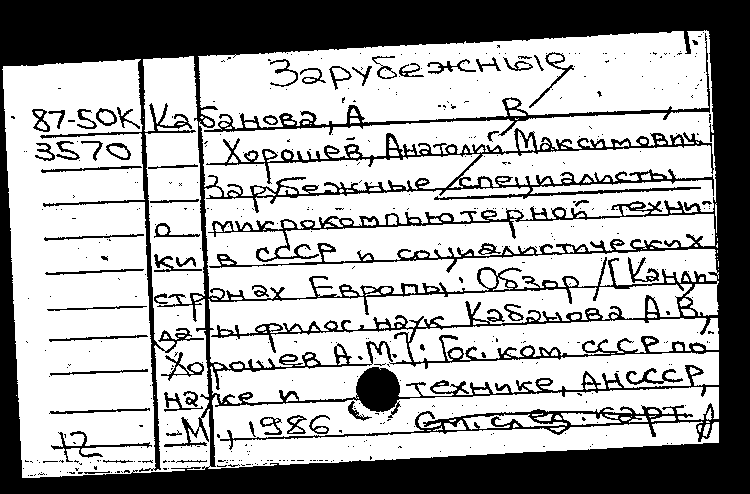 Зарубежные
87-50К Кабанова, А В.
3570 Хорошев, Анатолий Максимович.
Зарубежные специалисты
о микрокомпьютерной техни-
ки в СССР и социалистических
странах Европы: Обзор / [Канди-
даты филос. наук Кабанова А.В.,
Хорошев А.М.]; Гос. ком. СССР по
науке и технике, АН СССР,
-М., 1986. См. след. карт.
12